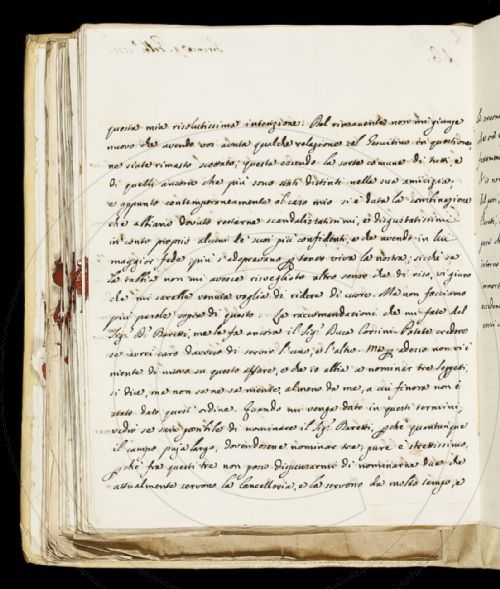 questa mia risolutissima intenzione. Del rimanente non mi giunge
nuovo che avendo voi avuta qualche relazione col Gesuitino in questione,
ne siate rimasto scottato, questa essendo la sorte comune di tutti, e
di quelli ancora che più sono stati distinti nella sua amicizia;
e appunto contemporaneamente al caso mio si è data la combinazione
che abbiano dovuto restarne scandalizzatissimi, e disgustatissimi
in conto proprio alcuni de suoi più confidenti, e che avendo in lui
maggior fede più s'adopravano per tener viva la nostra; sicchè se
la rabbia non mi avesse risvegliato altro senso che di riso, vi giuro
che mi sarebbe venuta voglia di ridere di cuore. Ma non facciamo
più parole sopra di questo. La raccomandazione che mi fate del
Sigr. Baretti, me la fa ancora il Sigr. Duca Corsini. Potete credere
se avrei caro davvero di servir l'uno, e l'altro. Ma per adesso non vi è
niente di nuovo su questo affare, e che io abbia a nominar tre soggetti,
si dice, ma non se ne sa niente, almeno da me, a cui finora non è
stato dato quest'ordine. Quando mi venga dato in questi termini,
vedrò se sarà possibile di nominare il Sigr. Baretti, perchè quantunque
il campo paja largo, dovendosene nominar tre, pure è strettissimo,
perchè fra questi tre non posso dispensarmi di nominarne due che
attualmente servono la Cancelleria, e la servono da molto tempo, e